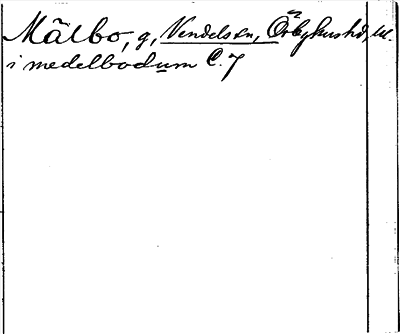 Mälbo, g, Vendels sn, Örbyhus hd, Ul.
i medelbodum C. 7